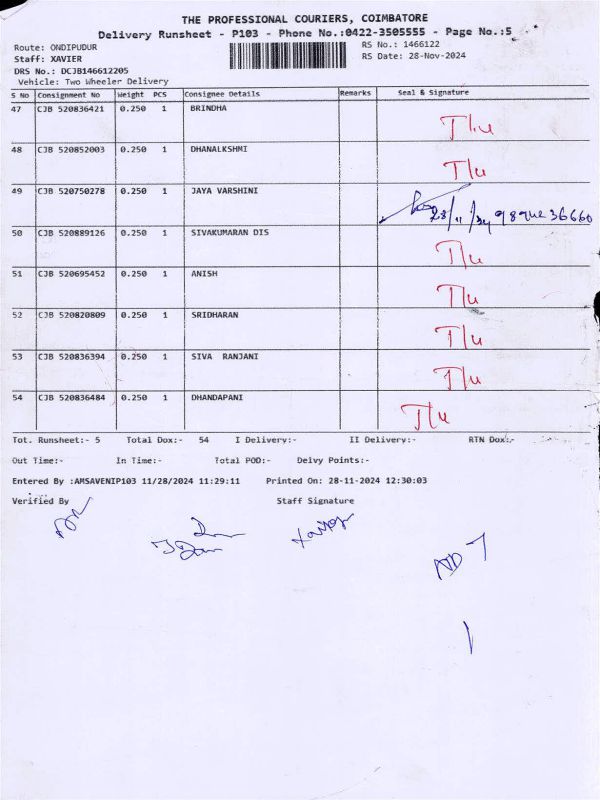 THE PROFESSIONAL COURIERS, COIMBATORE
Delivery Runsheet - P103 - Phone No.:0422-3505555 - Page No.:5
Route: ONDIPUDUR
RS No.: 1466122
Staff: XAVIER
RS Date: 28-Nov-2024
DRS No.: DCJB146612205
Vehicle: Two Wheeler Delivery
S No Consignment No Weight PCS Consignee Details Remarks Seal & Signature
47 CJB 520836421 0.250 1 BRINDHA T/u
48 CJB 520852003 0.250 1 DHANALKSHMI T/u
49 CJB 520750278 0.250 1 JAYA VARSHINI 28/11/24
50 CJB 520889126 0.250 1 SIVAKUMARAN DIS T/u
51 CJB 520695452 0.250 1 ANISH T/u
52 CJB 520820809 0.250 1 SRIDHARAN T/u
53 CJB 520836394 0.250 1 SIVA RANJANI T/u
54 CJB 520836484 0.250 1 DHANDAPANI T/u
Tot. Runsheet:- 5 Total Dox:- 54 I Delivery:- II Delivery:- RTN Dox:-
Out Time:- In Time:- Total POD:- Delvy Points:-
Entered By :AMSAVENIP103 11/28/2024 11:29:11 Printed On: 28-11-2024 12:30:03
Verified By Staff Signature